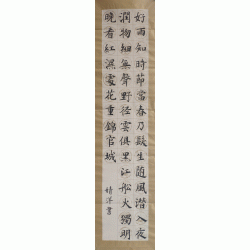 好雨知時節當春乃發生随風潛入夜
潤物細無聲野径雲俱黑江船火獨明
曉看紅濕處花重錦官城